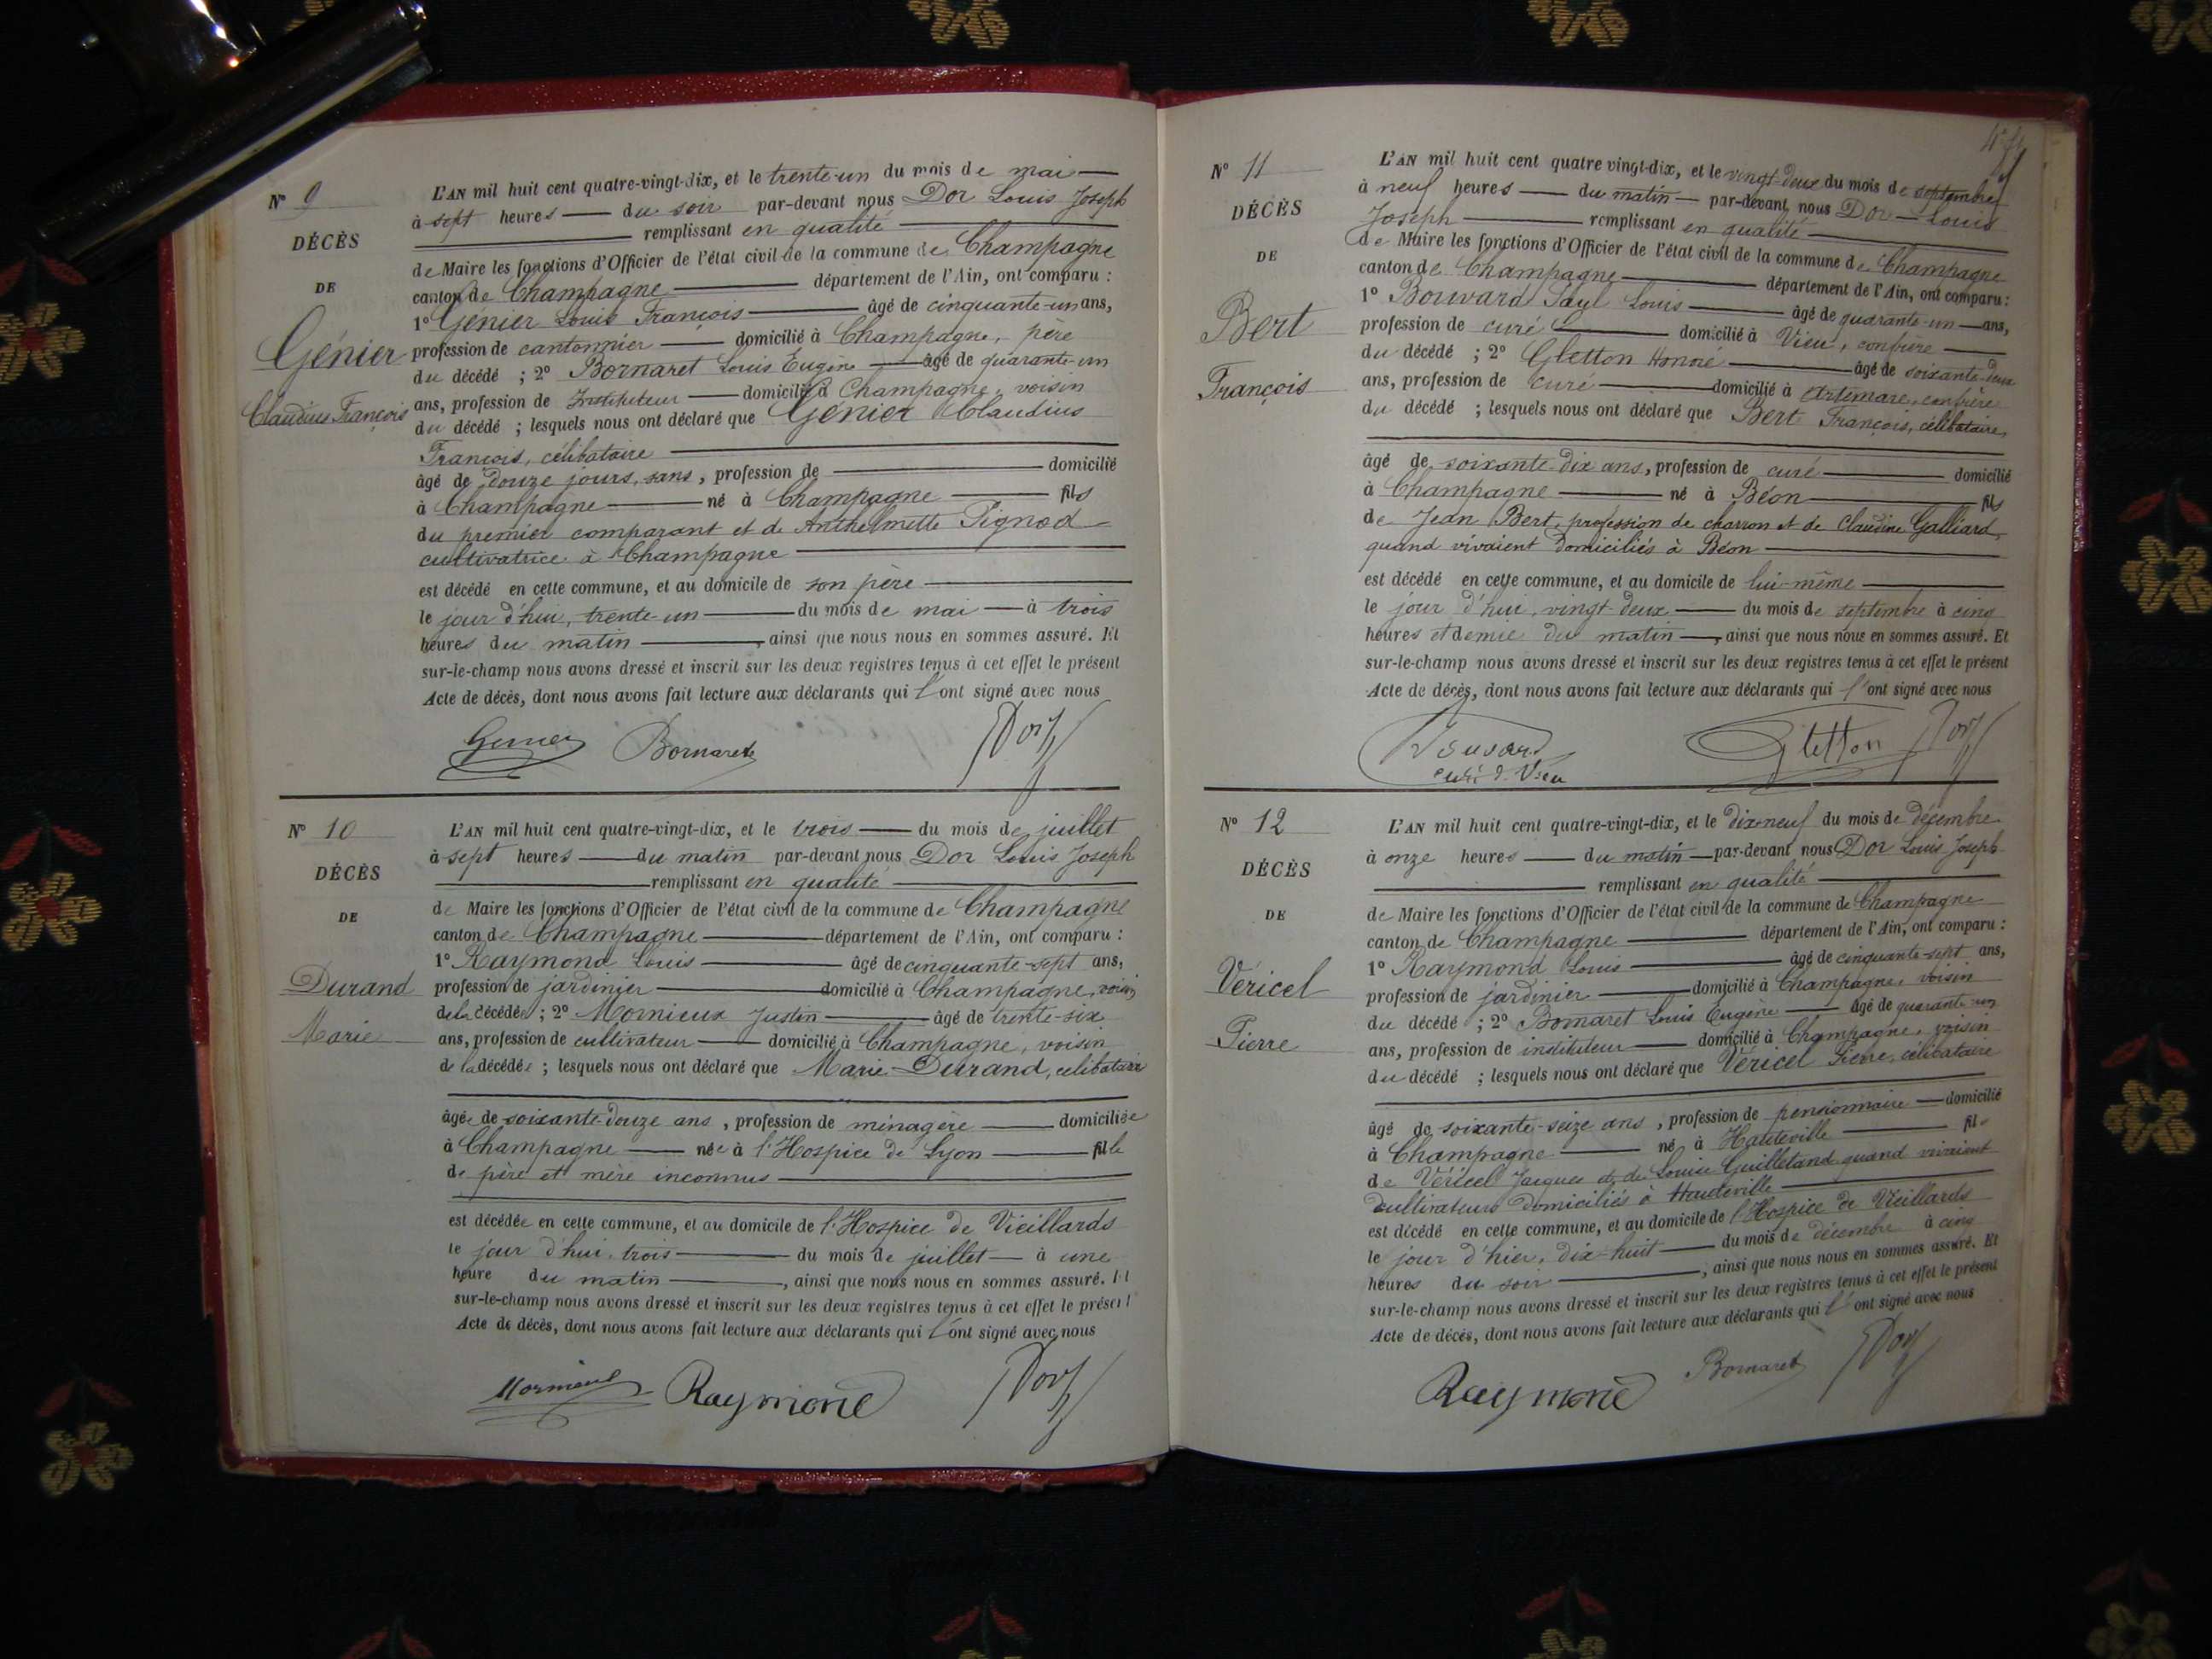 N° 9
DÉCÈS
DE
Génier
Claudius François
L'AN mil huit cent quatre-vingt-dix, et le trente-un du mois de mai
à sept heures du soir par-devant nous Dor Louis Joseph
remplissant en qualité
de Maire les fonctions d'Officier de l'état civil de la commune de Champagne
canton de Champagne département de l'Ain, ont comparu :
1° Génier Louis François âgé de cinquante-un ans,
profession de cantonnier domicilié à Champagne, père
du décédé ; 2° Bornaret Louis Eugène âgé de quarante-un
ans, profession de Instituteur domicilié à Champagne, voisin
du décédé ; lesquels nous ont déclaré que Génier Claudius
François, célibataire
âgé de douze jours, sans, profession de domicilié
à Champagne né à Champagne fils
du premier comparant et de Anthelmette Pignod
cultivatrice à Champagne
est décédé en cette commune, et au domicile de son père
le jour d'hui, trente-un du mois de mai à trois
heures du matin, ainsi que nous nous en sommes assuré. Et
sur-le-champ nous avons dressé et inscrit sur les deux registres tenus à cet effet le présent
Acte de décès, dont nous avons fait lecture aux déclarants qui l'ont signé avec nous
Genier Bornaret Dor
N° 10
DÉCÈS
DE
Durand
Marie
L'AN mil huit cent quatre-vingt-dix, et le trois du mois de juillet
à sept heures du matin par-devant nous Dor Louis Joseph
remplissant en qualité
de Maire les fonctions d'Officier de l'état civil de la commune de Champagne
canton de Champagne département de l'Ain, ont comparu :
1° Raymond Louis âgé de cinquante-sept ans,
profession de jardinier domicilié à Champagne, voisin
de la décédée ; 2° Mornieux Justin âgé de trente-six
ans, profession de cultivateur domicilié à Champagne, voisin
de la décédée ; lesquels nous ont déclaré que Marie Durand, célibataire
âgée de soixante-douze ans, profession de ménagère domiciliée
à Champagne née à l'Hospice de Lyon fille
de père et mère inconnus
est décédée en cette commune, et au domicile de l'Hospice de Vieillards
le jour d'hui, trois du mois de juillet à une
heure du matin, ainsi que nous nous en sommes assuré. Et
sur-le-champ nous avons dressé et inscrit sur les deux registres tenus à cet effet le présent
Acte de décès, dont nous avons fait lecture aux déclarants qui l'ont signé avec nous
Mornieux Raymond Dor
N° 11
DÉCÈS
DE
Bert
François
L'AN mil huit cent quatre vingt-dix, et le vingt-deux du mois de septembre
à neuf heures du matin par-devant nous Dor Louis
Joseph remplissant en qualité
de Maire les fonctions d'Officier de l'état civil de la commune de Champagne
canton de Champagne département de l'Ain, ont comparu :
1° Bouvard Paul Louis âgé de quarante-un ans,
profession de curé domicilié à Vieu, confrère
du décédé ; 2° Gletton Honoré âgé de soixante-deux
ans, profession de curé domicilié à Artemare, confrère
du décédé ; lesquels nous ont déclaré que Bert François, célibataire,
âgé de soixante-dix ans, profession de curé domicilié
à Champagne né à Béon fils
de Jean Bert, profession de charron et de Claudine Galliard,
quand vivaient domiciliés à Béon
est décédé en cette commune, et au domicile de lui-même
le jour d'hui, vingt-deux du mois de septembre à cinq
heures et demie du matin, ainsi que nous nous en sommes assuré. Et
sur-le-champ nous avons dressé et inscrit sur les deux registres tenus à cet effet le présent
Acte de décès, dont nous avons fait lecture aux déclarants qui l'ont signé avec nous
Bouvard Gletton Dor
curé d. Vieu
N° 12
DÉCÈS
DE
Véricel
Pierre
L'AN mil huit cent quatre-vingt-dix, et le dix-neuf du mois de décembre
à onze heures du matin par-devant nous Dor Louis Joseph
remplissant en qualité
de Maire les fonctions d'Officier de l'état civil de la commune de Champagne
canton de Champagne département de l'Ain, ont comparu :
1° Raymond Louis âgé de cinquante-sept ans,
profession de jardinier domicilié à Champagne, voisin
du décédé ; 2° Bornaret Louis Eugène âgé de quarante-un
ans, profession de instituteur domicilié à Champagne, voisin
du décédé ; lesquels nous ont déclaré que Véricel Pierre, célibataire
âgé de soixante-seize ans, profession de pensionnaire domicilié
à Champagne né à Hauteville fils
de Véricel Jacques et de Louise Guilletand quand vivaient
cultivateurs domiciliés à Hauteville
est décédé en cette commune, et au domicile de l'Hospice de Vieillards
le jour d'hier, dix-huit du mois de décembre à cinq
heures du soir, ainsi que nous nous en sommes assuré. Et
sur-le-champ nous avons dressé et inscrit sur les deux registres tenus à cet effet le présent
Acte de décès, dont nous avons fait lecture aux déclarants qui l'ont signé avec nous
Raymond Bornaret Dor